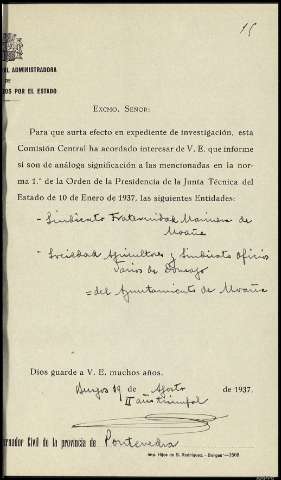 15
AL ADMINISTRADORA
DE
OS POR EL ESTADO
EXCMO. SEÑOR:
Para que surta efecto en expediente de investigación, esta
Comisión Central ha acordado interesar de V. E. que informe
si son de análoga significación a las mencionadas en la nor-
ma 1.ª de la Orden de la Presidencia de la Junta Técnica del
Estado de 10 de Enero de 1937, las siguientes Entidades:
- Sindicato Fraternidad Marinera de
Moaña
- Sociedad Agricultores y Sindicato Oficios
Varios de Domayo
= del Ayuntamiento de Moaña
Dios guarde a V. E. muchos años.
Burgos 19 de Agosto de 1937.
II año triunfal
ernador Civil de la provincia de Pontevedra
Imp. Hijos de S. Rodríguez.-Burgos